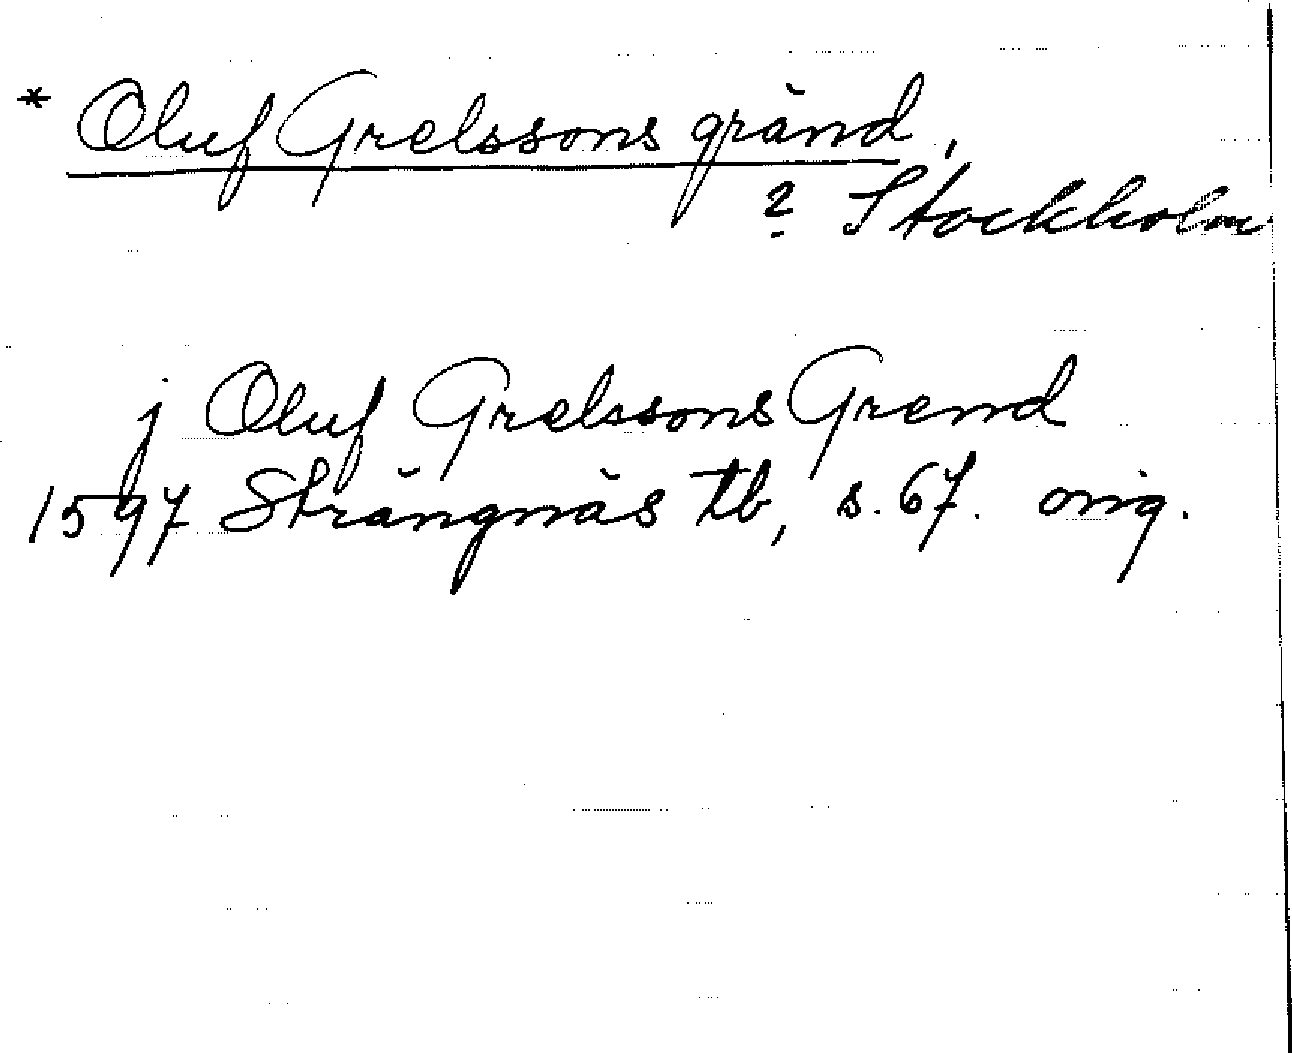 * Oluf Grelssons gränd,
? Stockholm
j Oluf Grelssons Grend
1597 Strängnäs tb, s. 67. orig.